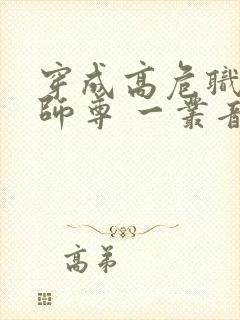 穿成高危職
師尊 一叢音
高弟